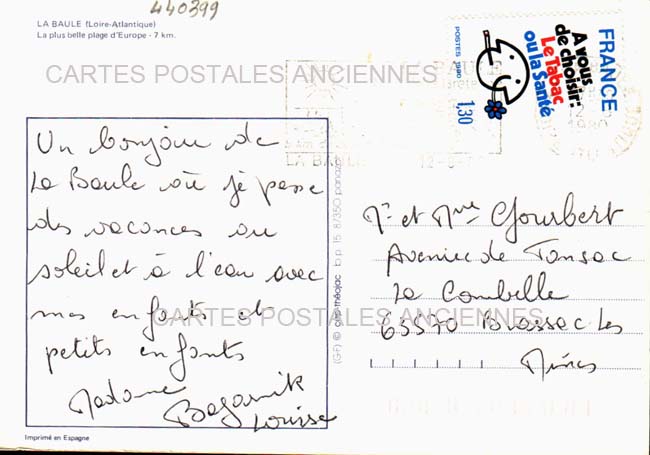 440399
LA BAULE (Loire-Atlantique)
La plus belle plage d'Europe - 7 km.
CARTES POSTALES ANCIENNES
FRANCE
A vous
de choisir:
Le Tabac
ou la Santé
POSTES 1980
1,30
LA BAULE
Un bonjour de
La Baule où je passe
des vacances au
soleil et à l'eau avec
mes enfants et
petits enfants
Madame
Louise
Mr et Mme Gourbert
Avenue de
La Combelle
63570 Brassac les
Mines
CARTES POSTALES ANCIENNES
(G-F) © cité-théojac b.p. 15 87350 panazol
Imprimé en Espagne